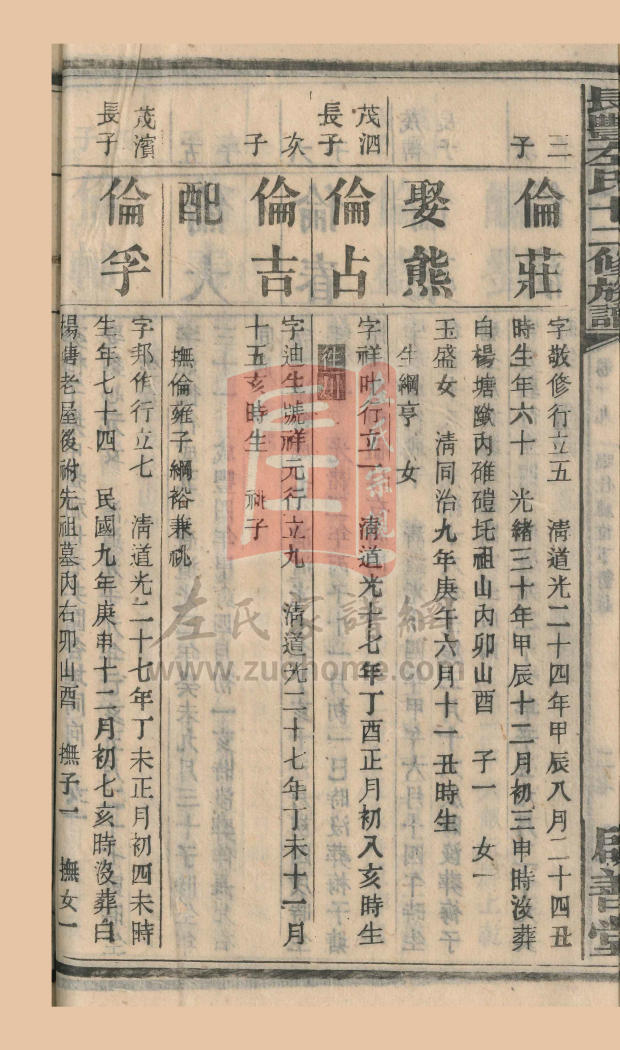 長豐左氏十二修族譜
三子
倫莊
字敬修行立五　清道光二十四年甲辰八月二十四丑
時生年六十　光緒三十年甲辰十二月初三申時沒葬
白楊塘歐內碓磑坵祖山內卯山酉　子一　女一
娶熊
玉盛女　清同治九年庚午六月十一丑時生
生綱亨　女
茂泗長子
倫占
字祥叶行立一　清道光十七年丁酉正月初八亥時生
次子
倫吉
字迪生號祥元行立九　清道光二十七年丁未十一月
十五亥時生　祧子
配
撫倫雍子綱裕兼祧
茂濱長子
倫孚
字邦作行立七　清道光二十七年丁未正月初四未時
生年七十四　民國九年庚申十二月初七亥時沒葬白
楊塘老屋後祔先祖墓內右卯山酉　撫子一　撫女一
啟善堂
左氏家譜網
www.zuohome.com